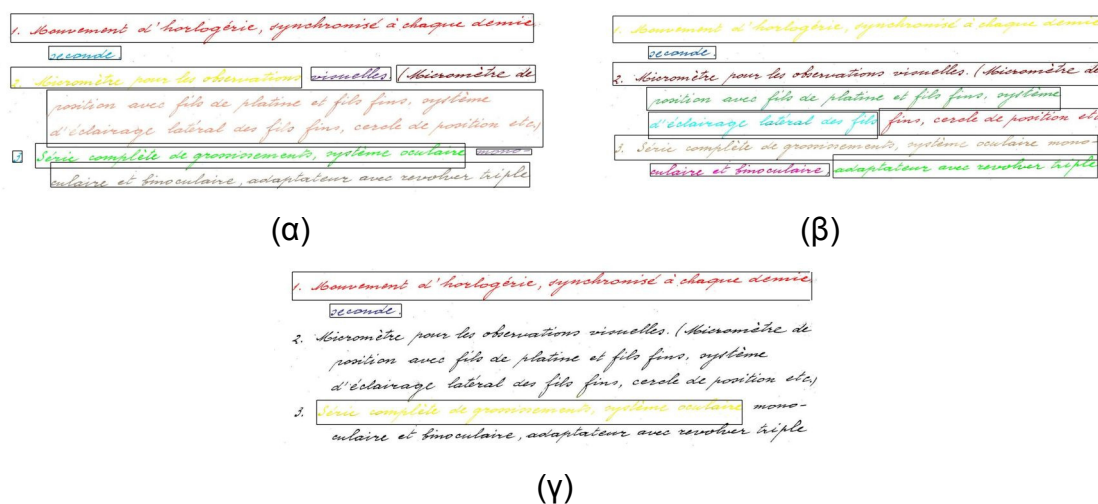 1. Mouvement d'horlogérie, synchronisé à chaque demie
seconde.
2. Micromètre pour les observations visuelles. (Micromètre de
position avec fils de platine et fils fins, système
d'éclairage latéral des fils fins, cercle de position etc.)
3. Série complète de grossissements, système oculaire mono-
culaire et binoculaire, adaptateur avec revolver triple
(α)
1. Mouvement d'horlogérie, synchronisé à chaque demie
seconde.
2. Micromètre pour les observations visuelles. (Micromètre de
position avec fils de platine et fils fins, système
d'éclairage latéral des fils fins, cercle de position etc.
3. Série complète de grossissements, système oculaire mono-
culaire et binoculaire, adaptateur avec revolver triple
(β)
1. Mouvement d'horlogérie, synchronisé à chaque demie
seconde.
2. Micromètre pour les observations visuelles. (Micromètre de
position avec fils de platine et fils fins, système
d'éclairage latéral des fils fins, cercle de position etc.)
3. Série complète de grossissements, système oculaire mono-
culaire et binoculaire, adaptateur avec revolver triple
(γ)